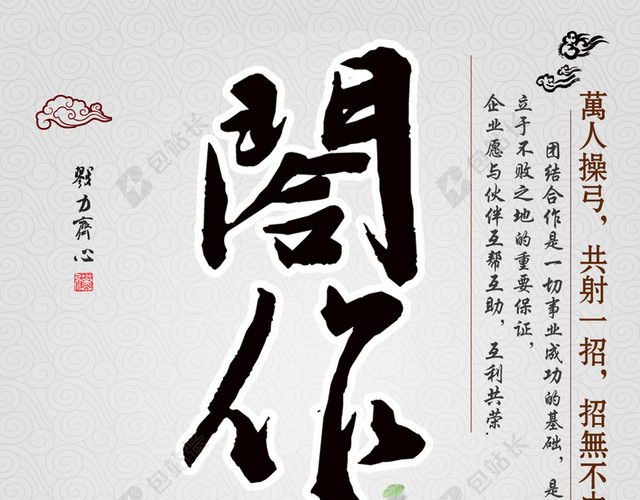 萬人操弓，共射一招，招無不
团结合作是一切事业成功的基础，是
立于不败之地的重要保证，
企业愿与伙伴互帮互助，互利共荣.
閤作
戮力齊心
包站长
包站长
包站长
包站长